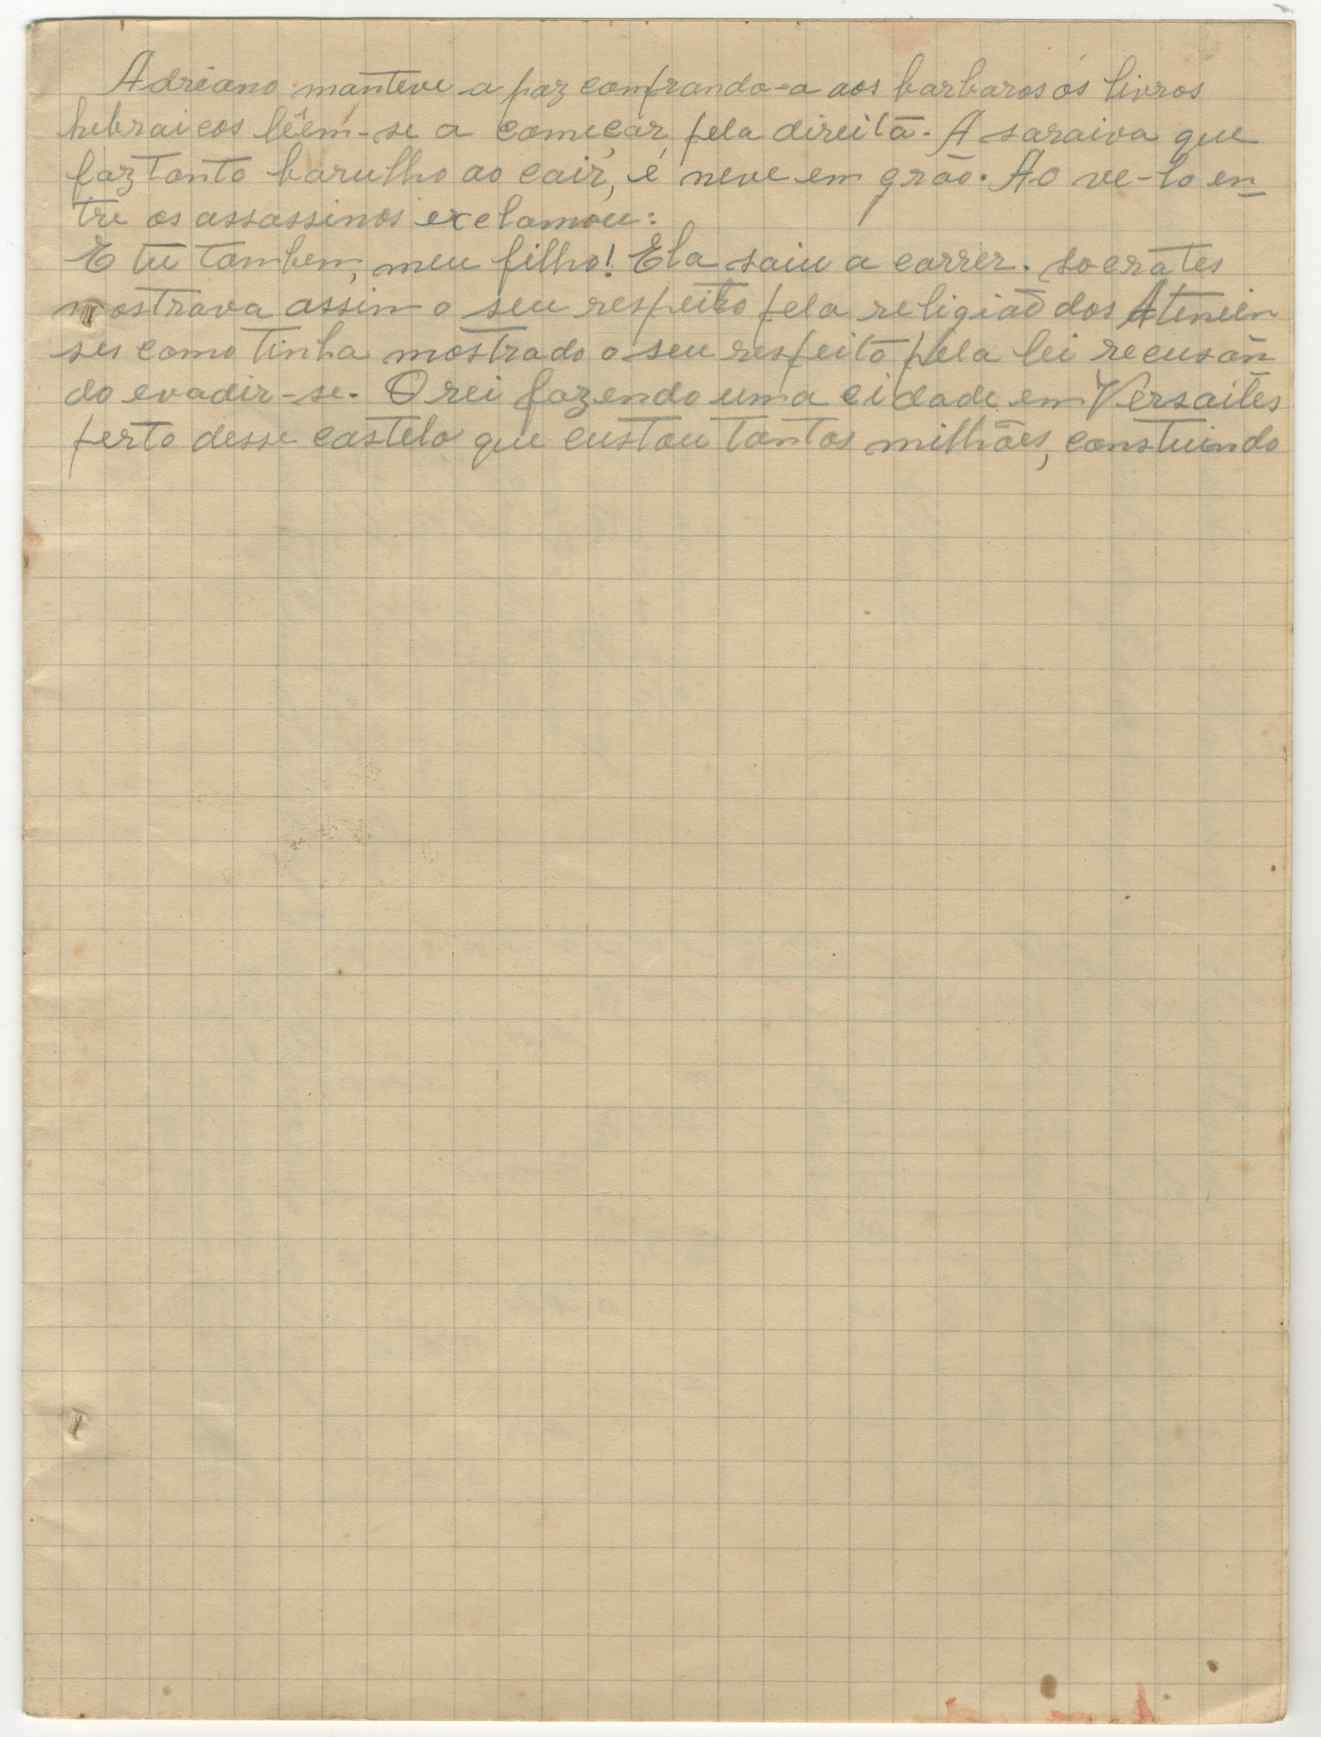 Adriano manteve a paz comprando-a aos barbaros os livros
hebraicos lêem-se a começar pela direita. A saraiva que
faz tanto barulho ao cair, é neve em grão. Ao ve-lo en
tre os assassinos exclamou:
E tu tambem, meu filho! Ela saiu a correr. Socrates
mostrava assim o seu respeito pela religião dos Atenien
ses como tinha mostrado o seu respeito pela lei recusan
do evadir-se. O rei fazendo uma cidade em Versailes
perto desse castelo que custou tantos milhões, constuindo